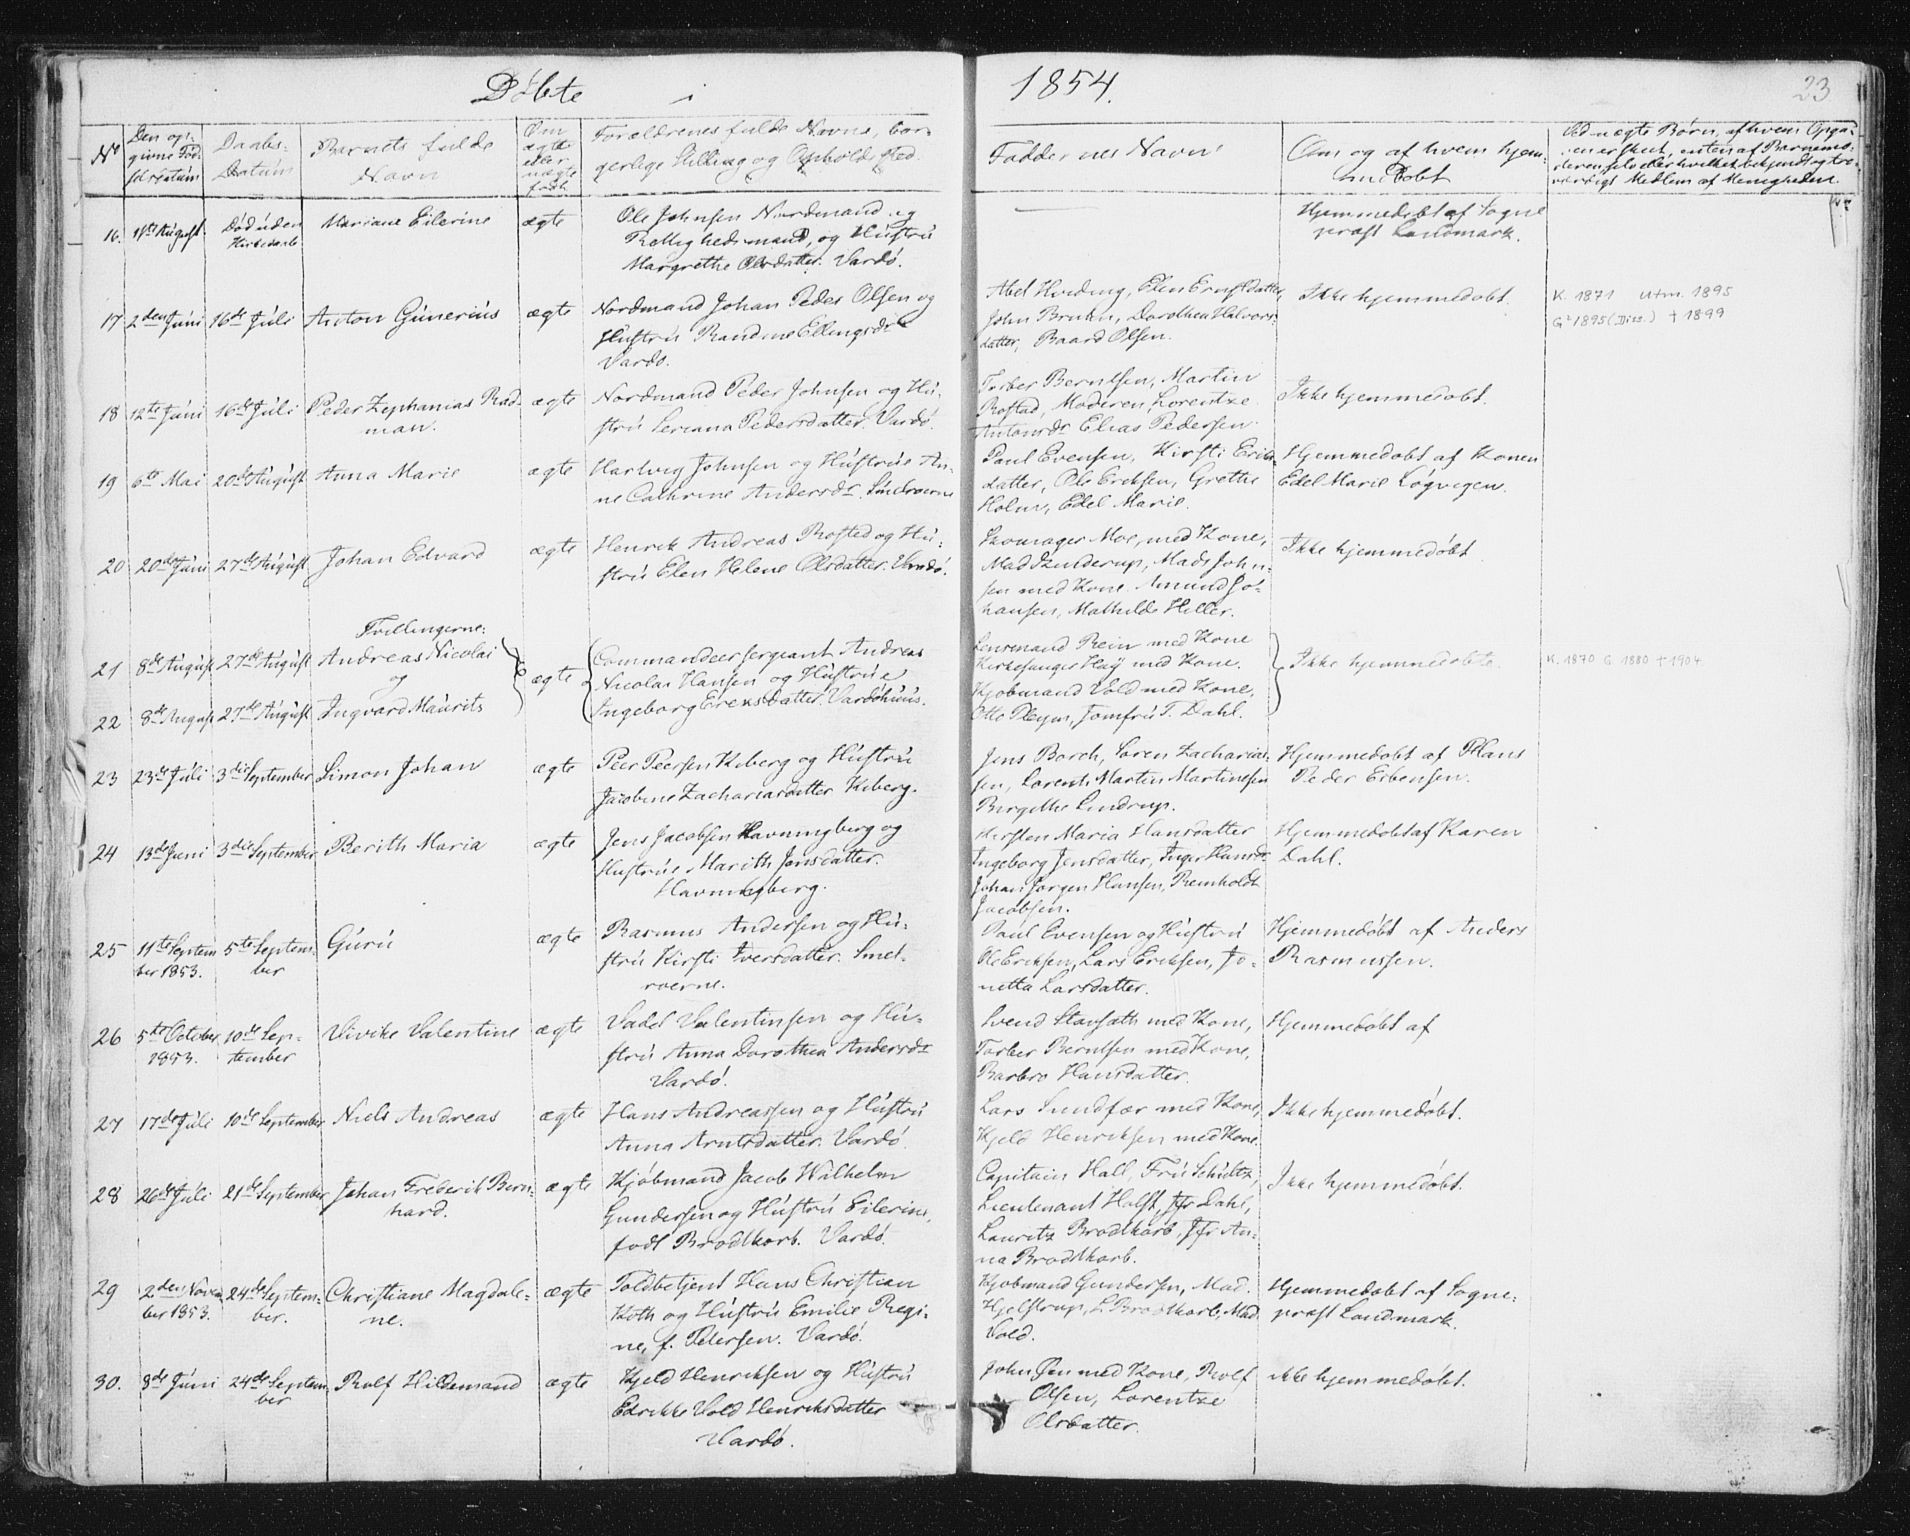 Döbte i 1854.
23
No
Den op-
givne Föd-
selsdatum
Daabs-
Datum
Barnets fulde
Navn
Om
ægte
eller
uægte
født
Forældrenes fulde Navne, bor-
gerlige Stilling og Opholds Sted.
Faddernes Navne
Om og af hvem hjem-
medöbt
Ved uægte Börn, af hvem Opga-
ven er skeet, enten af Barnemo-
deren selv eller hvilket bekjendt og tro-
værdigt Medlem af Menigheden.
16. August. Död uden Mariane Eilerine ægte Ole Johnsen Nordmand og
Rettighedsmand, og Hustru
Margrethe Olsdatter. Vardö.
Hjemmedöbt af Sogne
præst Landmark.
17 2den Juni 16de Juli Anton Gunerius ægte Nordmand Johan Peder Olsen og
Hustru Randine Ellingsdr
Vardö.
Abel Hveding, Elen Ernstdatter,
John Bruun, Dorothea Halvors-
datter, Baard Olsen.
Ikke hjemmedöbt.
K. 1871 Utm. 1895
G² 1895 (Diss.) † 1899
18 12te Juni 16de Juli Peder Zephanias Rad-
man.
ægte Nordmand Peder Johnsen og Hu-
stru Seriana Pedersdatter. Vardö.
Torber Berntsen, Martin
Rostad, Moderen, Lorentze
Antonsdr Elias Pedersen.
Ikke hjemmedöbt.
19 6te Mai 20de August Anna Marie ægte Hartvig Johnsen og Hustrue An-
ne Cathrine Andersdr.
Paul Evensen, Kirsti Eriks-
datter, Ole Eriksen, Grethe
Holm, Edel Marie.
Hjemmedöbt af Konen
Edel Marie Lögvigen.
20 20de Juni 27de August Johan Edvard ægte Henrik Andreas Rosted og Hu-
stru Elen Helene Olsdatter. Vardö.
Skomager Moe, med Kone,
Mad. Hunderup, Mads John-
sen med Kone Amund Jo-
hansen, Mathilde Heller.
Ikke hjemmedöbt
Tvillingerne:
21 8de August 27de August Andreas Nicolai
og
22 8de August 27de August Ingvard Maurits
ægte
Commandeersergeant Andreas
Nicolai Hansen og Hustrue
Ingeborg Eriksdatter. Vardöhuus.
Lensmand Rein med Kone
Kirkesanger Haÿ med Kone.
Kjöbmand Vold med Kone,
Otto Pleym, Jomfru T. Dahl.
Ikke hjemmedöbte.
K. 1870 G. 1880 † 1904
23 23de Juli 3die September Simon Johan ægte Peer Peersen Kiberg og Hustru
Jacobine Zachariasdatter Kiberg.
Jens Borch, Sören Zacharias-
sen, Lorents Martin Martinsen
Birgithe Lindrup.
Hjemmedöbt af Hans
Peder Esbensen.
24 13de Juni 3die September Berith Maria ægte Jens Jacobsen Havningberg og
Hustrue Marith Jonsdatter.
Havningberg.
Kirsten Maria Hansdatter
Ingeborg Jensdatter, Inger Hansdr.
Johan Jörgen Hansen, Reinholdt
Jacobsen.
Hjemmedöbt af Karen
Dahl.
25 11te Septem-
ber 1853.
5te Septem-
ber
Guru ægte Rasmus Andersen og Hu-
stru Kirsti Iversdatter. Smel-
rorerne.
Paul Evensen og Hustru
Ole Eriksen, Lars Eriksen, Jo-
netta Larsdatter.
Hjemmedöbt af Anders
Rasmussen.
26 5te October
1853.
10de Sep-
tember
Vivike Valentine ægte Vadel Valentinsen og Hu-
stru Anna Dorothea Andersdr
Vardö.
Svend Stavsath med Kone,
Torber Berntsen med Kone,
Barbro Hansdatter.
Hjemmedöbt af
27 17de Juli 10de September Niels Andreas ægte Hans Andreassen og Hustru
Anna Arntsdatter. Vardö.
Lars Sundfær med Kone,
Kjeld Henriksen med Kone.
Ikke hjemmedöbt.
28 26de Juli 21de September Johan Frederik Bern-
hard.
ægte Kjöbmand Jacob Wilhelm
Gundersen og Hustru Eilerine,
födt Brodtkorb. Vardö.
Capitain Hall, Fru Schultz,
Lieutenant Holst, Jfr Dahl,
Lauritz Brodtkorb, Jfr An-
na Brodtkorb.
Ikke hjemmedöbt.
29 2den Novem-
ber 1853.
24de Septem-
ber.
Christiane Magdale-
ne.
ægte Toldbetjent Hans Christian
Koth og Hustru Emilie Regi-
ne, f. Petersen. Vardö.
Kjöbmand Gundersen, Mad.
Hjelstrup, L. Brodtkorb, Mad.
Vold.
Hjemmedöbt af Sogne-
præst Landmark.
30. 8de Juni 24de Septem-
ber
Rolf Hildemand ægte Kjeld Henriksen og Hustru
Edrikke Vold Henriksdatter
Vardö.
John med Kone, Rolf
Olsen, Lorentze
Olsdatter.
ikke hjemmedöbt.